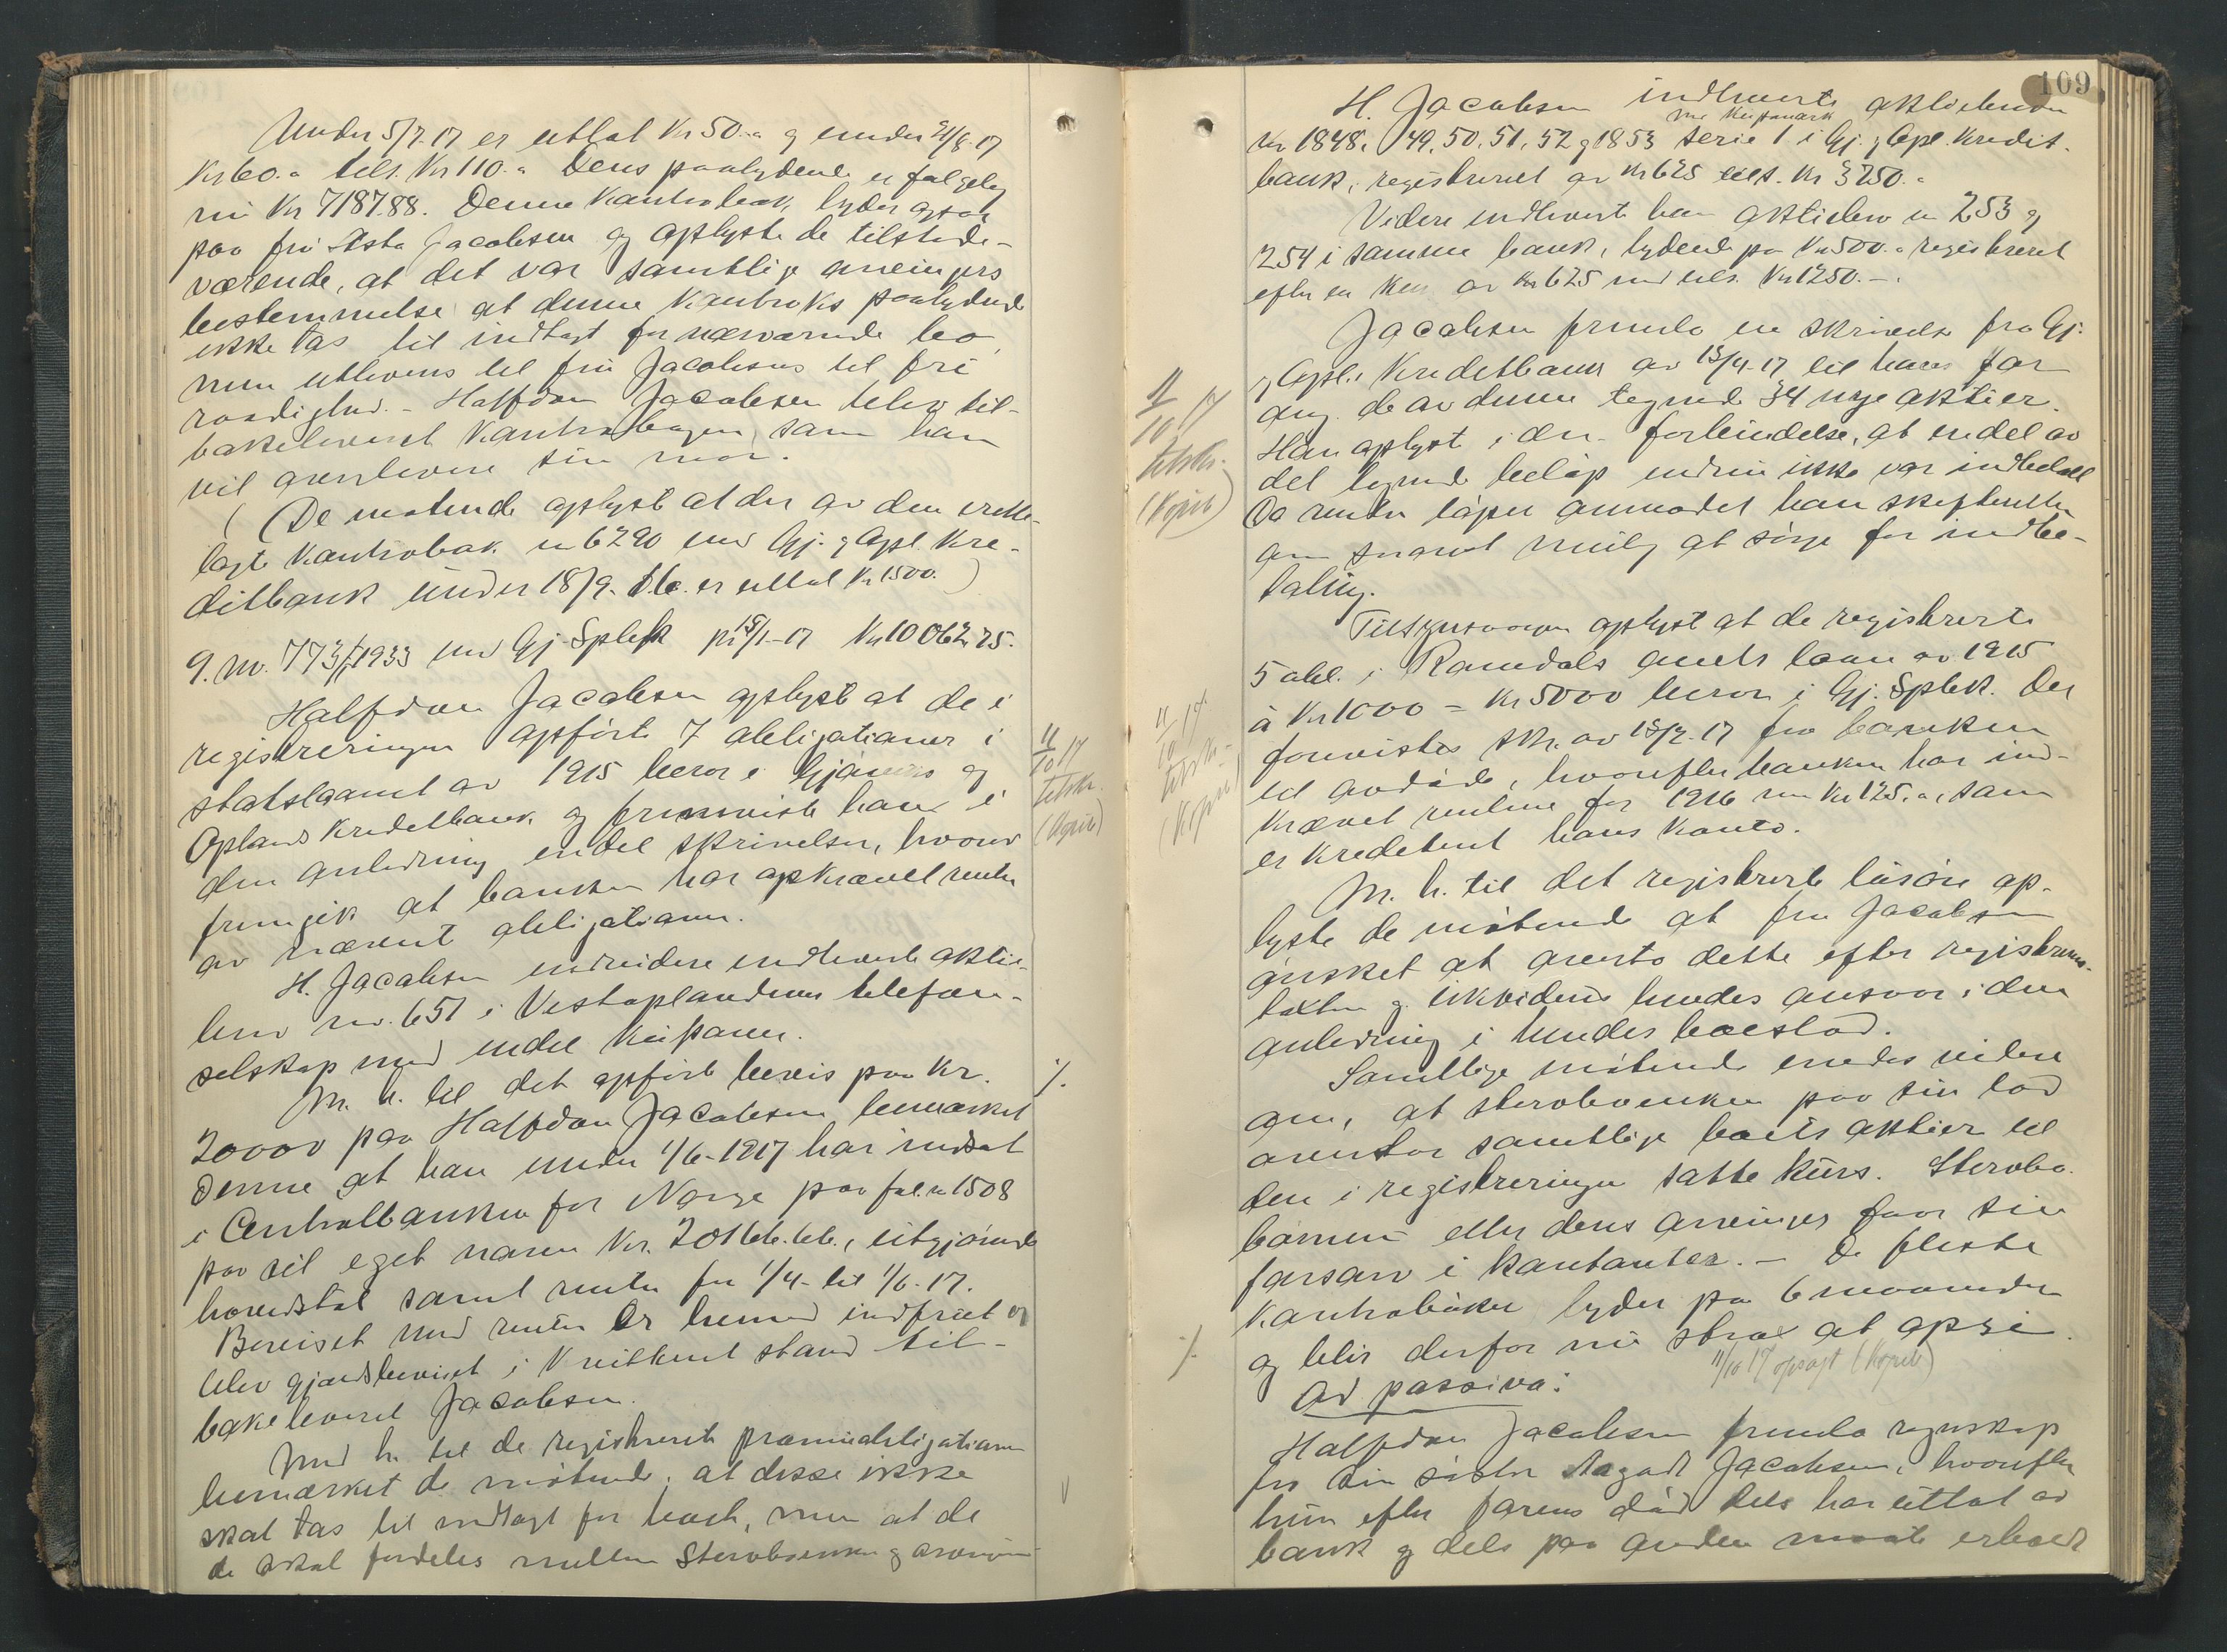 Under 5/7.17 er uttat Kr 50.- og under 21/8.17
Kr 60.- tils. Kr 110.- Dens paalydende er følgelig
nu Kr 7187.88. Denne kontrabok lyder ogsaa
paa fru Asta Jacobsen og oplyste de tilstede-
værende, at det var samtlige arvingers
bestemmelse at denne kontraboks paalydende
ikke tas til indtægt for nærværende bo,
men utleveres til fru Jacobsens til fri
raadighed. - Halfdan Jacobsen blev til-
bakelevert kontrabogen som han
vil overlevere sin mor.
(De møtende oplyst at der av den
lagte kontrabok nr 6290 med Gj. og Opl. Kre-
ditbank under 18/9. 16. er uttat Kr 1500.)
9. no. 773/1933 med Gj Spbk pr 15/1-17 Kr 10062.25.
Halfdan Jacobsen oplyst at de i
registreringen opførte 7 obligationer i
statslaanet av 1915 beror i Gjøviks og
Oplands Kreditbank og fremviste han i
den anledning endel skrivelser, hvorav
fremgik at banken har opkrævet renter
av nævnte obligationer.
H. Jacobsen endvidere indleverte aktie-
brev no. 651 i Vestoplandenes telefon-
selskap med endel kuponer.
M. h. til det opførte bevis paa Kr.
20000 paa Halfdan Jacobsen bemærket
denne at han under 1/6-1917 har indsat
i Centralbanken for Norge paa fol. nr 1508
paa sit eget navn Kr. 20166.66., utgjørende
hovedstol samt renter fra 1/4- til 1/6-17.
Beviset med renter er hermed indfriet og
blev gjældsbeviset i kvittert stand til-
bakelevert Jacobsen.
Med h. til de registrerte præmieobligationer
bemærket de møtende, at disse ikke
skal tas til indtægt for boet, men at de
de skal fordeles mellem Sterboenken og
11/10 17
tilskr.
(Kopib)
·/.
109
H. Jacobsen indleverte aktiebrever
med kuponark
Nr 1848, 49, 50, 51, 52 og 1853 Serie 1 i Gj. og Opl. Kredit-
bank, registreret av Kr 625 tils. Kr 3750.-
Videre indleverte han aktiebrev nr 253 og
254 i samme bank, lydende paa Kr 500.- registreret
efter en kurs av Kr 625 med tils. Kr 1250.-.
Jacobsen fremla en skrivelse fra Gj.
og Opl. Kreditbank av 13/4-17 til hans far
ang. de av denne tegnede 34 nye aktier.
Han oplyst i den forbindelse, at endel av
det tegnede beløp endnu ikke var indbetalt
Da renter løper anmodet han skifteretten
om snarest mulig at sørge for indbe-
taling.
11/10 17
tilskr.
(Kopib)
oplyst at de registrerte
5 obl. i Romsdals amts laan av 1915
à Kr 1000 = Kr 5000 beror i Gj. Spbk. Der
foreviste skr. av fra banken
til avdøde, hvorefter banken har ind-
krævet renterne for 1916 med Kr 125.-, som
er krediteret hans konto.
11/10 17
tilskr.
(Kopib)
M. h. til det registrerte løsøre op-
lyste de møtende at fru Jacobsen
ønsket at overta dette efter registrerings-
taksten og likvideres hendes ansvar i den
anledning i hendes boeslod.
Samtlige møtende enedes videre
om, at sterboenken paa sin lod
overtar samtlige boets aktier til
den i registreringen satte kurs. Sterbo-
barnene eller dens arvinger faar sin
farsarv i kontanter. - De fleste
kontrabøker lyder paa 6 maaneder
og blir derfor nu straks at opsi.
·/.
11/10 17 opsagt (Kopib)
Ad passiva:
Halfdan Jacobsen fremla regnskap
fra sin søster Aagodt Jacobsen, hvorefter
hun efter farens død dels har uttat av
bank og dels paa anden maate erholdt